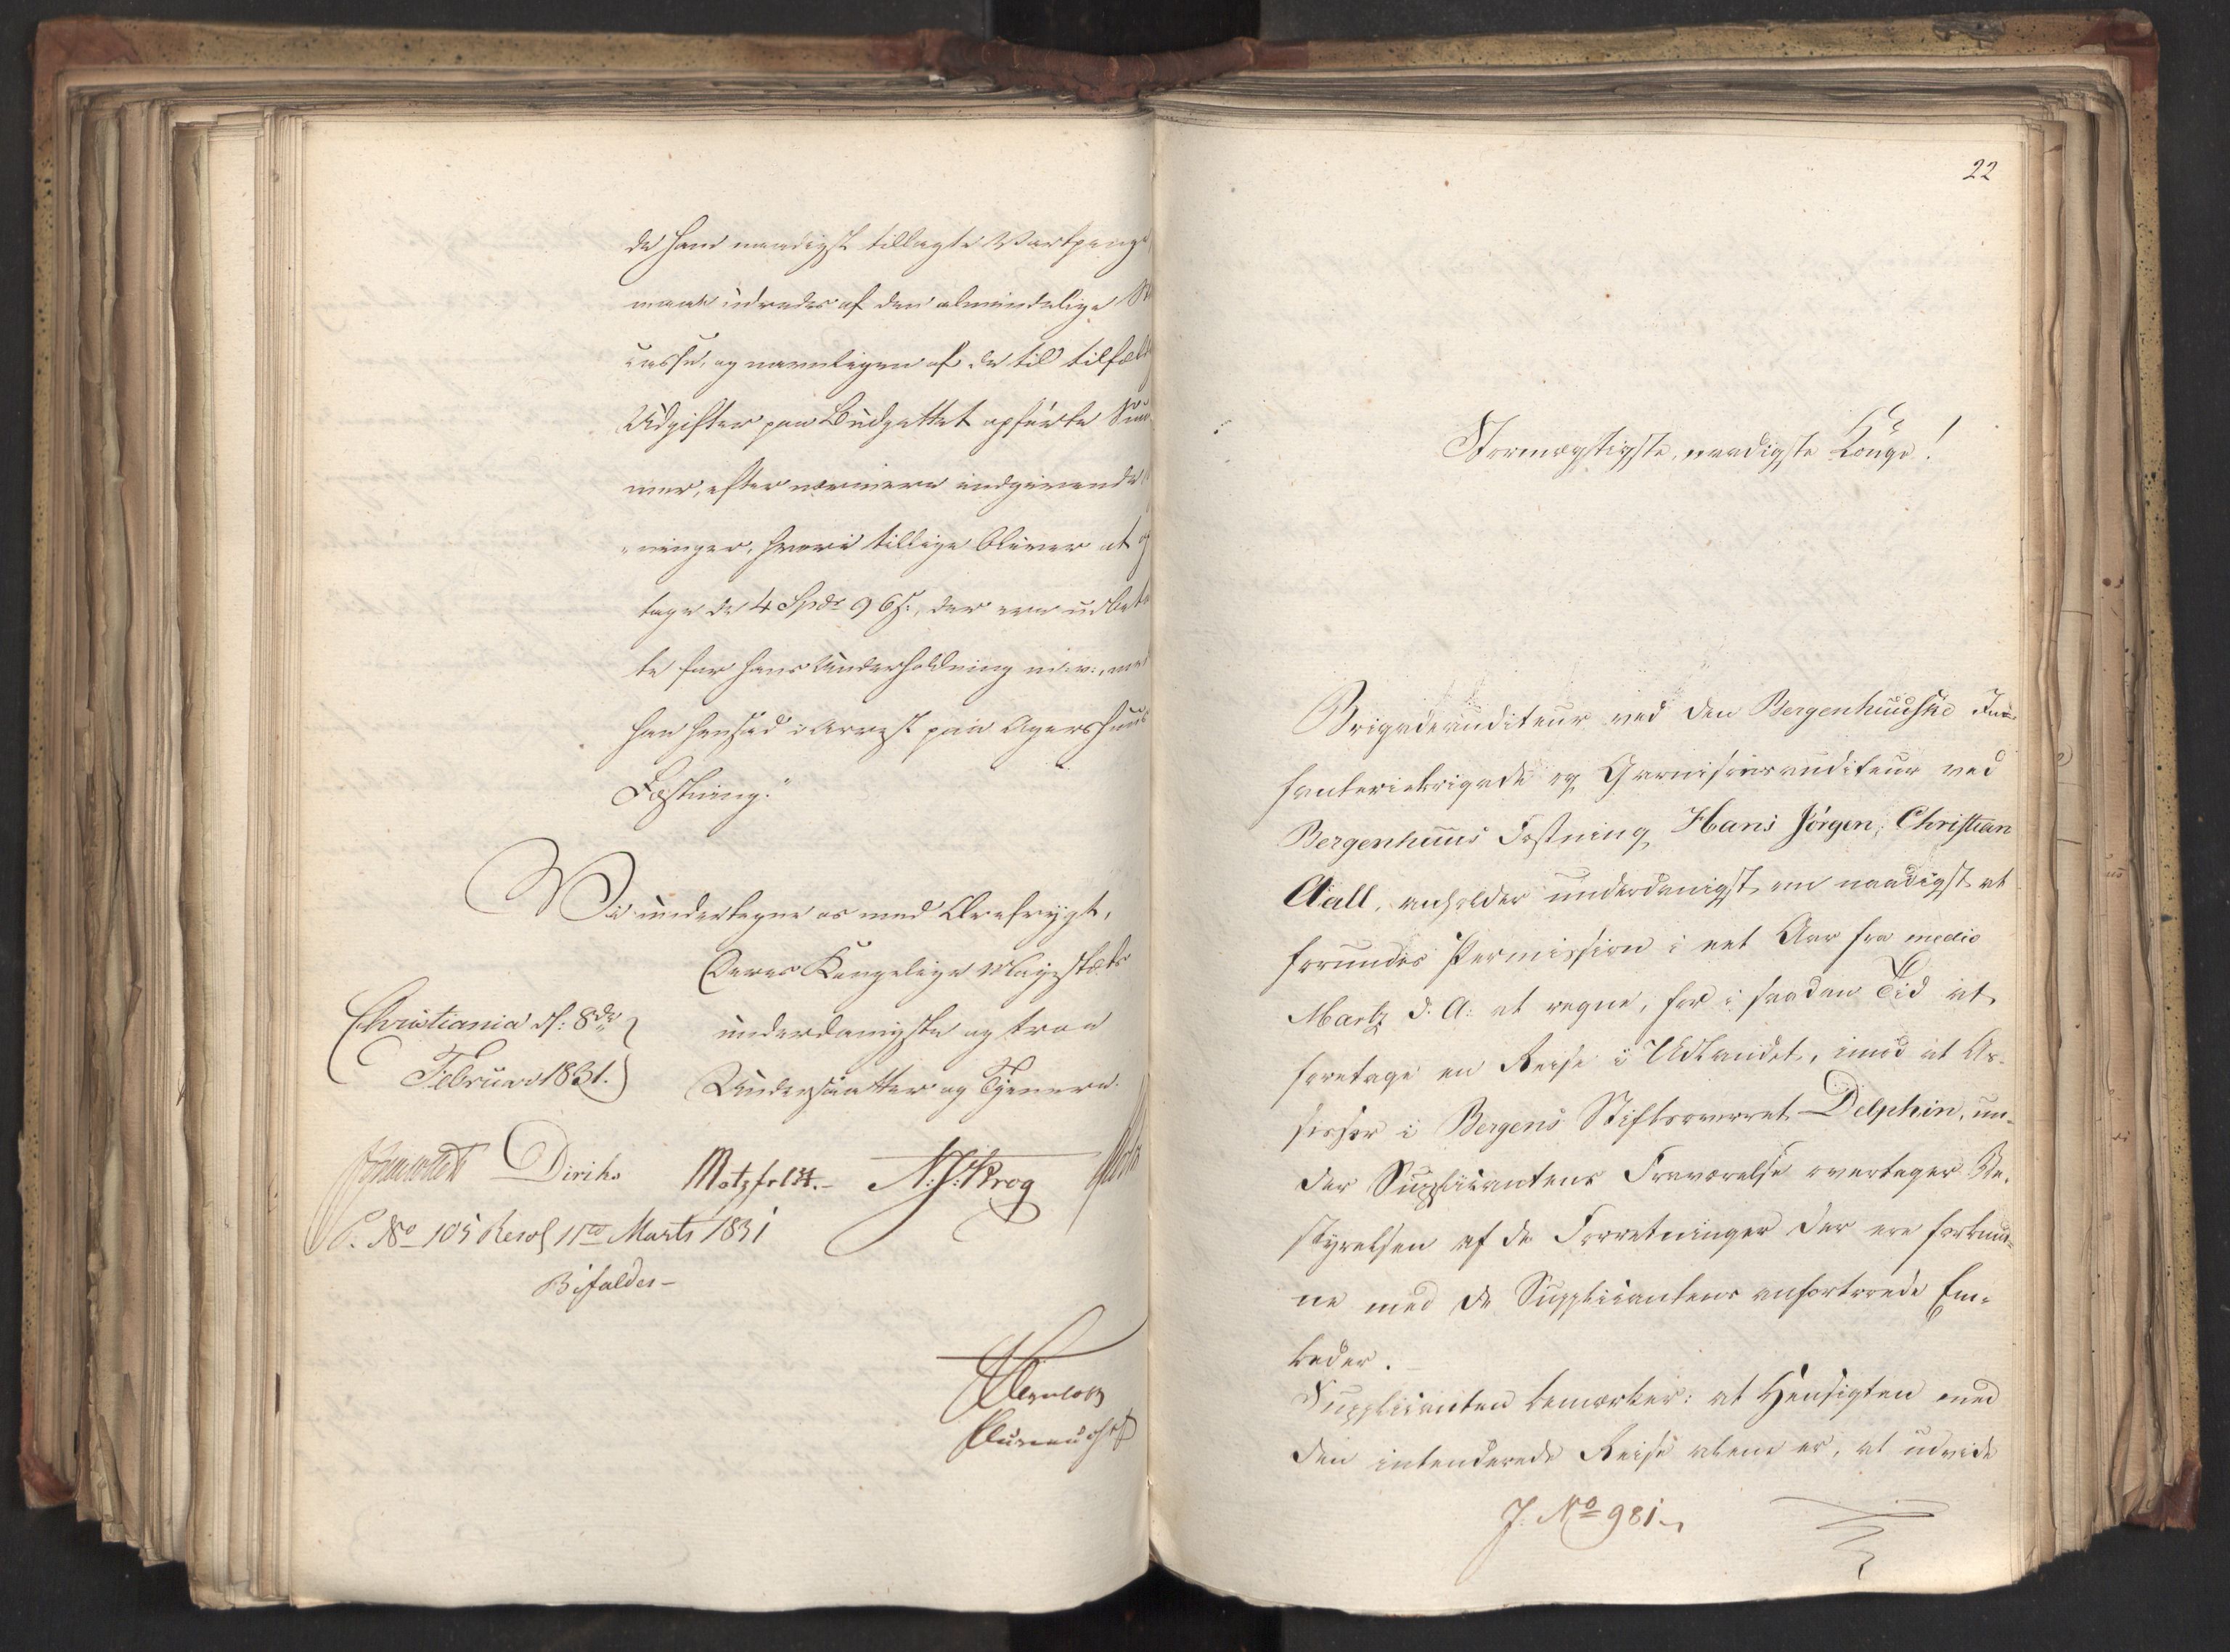 de ham naadigst tillagte Vartpenge
maae udredes af den almindelige
casse, og navnligen af de til tilfæld
Udgifter paa Budgettet opførte Sum
mer, efter nærmere indgivende
ninger, hvori tillige bliver at
tage de 4 Spdr 96 s:, der ere udbetal
te for hans Underholdning m: v:, med
han hensad i Arrest paa Agershuus
Fæstning."
Vi undertegne os med Ærefrygt,
Deres Kongelige Majestæts
Christiania d: 8de
underdanigste og troe
Februar 1831.
Undersaatter og Tjenere.
Diriks Motzfeldt.- N: J: Krog
P. No 105 Resol 11te Marts 1831
Bifaldes-
22
Stormægtigste, naadigste Konge!
Brigadeauditeur ved den Bergenhuuske In-
fanteriebrigade og Garnisonsauditeur ved
Bergenhuus Fæstning Hans Jörgen Christian
Aall, anholder underdanigst om naadigst at
forundes Permission i eet Aar fra medio
Martz d. A: at regne, for i saadan Tid at
foretage en Reise i Udlandet, imod at As-
sessor i Bergens Stiftsoverret Delphin, un-
der Supplicantens Fraværelse overtager Be-
styrelsen af de Forretninger der ere forbund-
ne med de Supplicanten anfortroede Em-
beder.
Supplicanten bemærker: at Hensigten med
den intenderede Reise alene er, at udvide
J. No 981